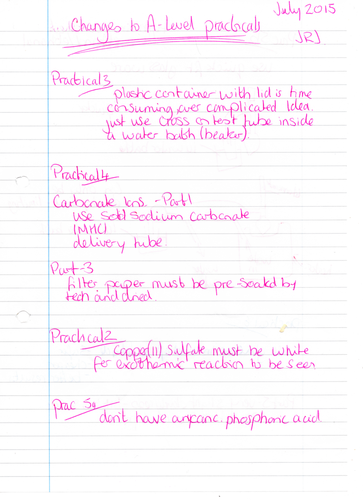 July 2015
Changes to A-Level practicals
JRJ
Practical 3
plastic container with lid is time
consuming, over complicated Idea.
just use cross on test tube inside
a water bath (beaker).
Practical 4
Carbonate Ions. - Part 1
use sodium carbonate
delivery tube.
Part-3
filter paper must be pre-soaked by
tech and dried.
Practical 2
Copper(II) Sulfate must be white
for exothermic reaction to be seen
Prac 5a
don't have any conc. phosphoric acid